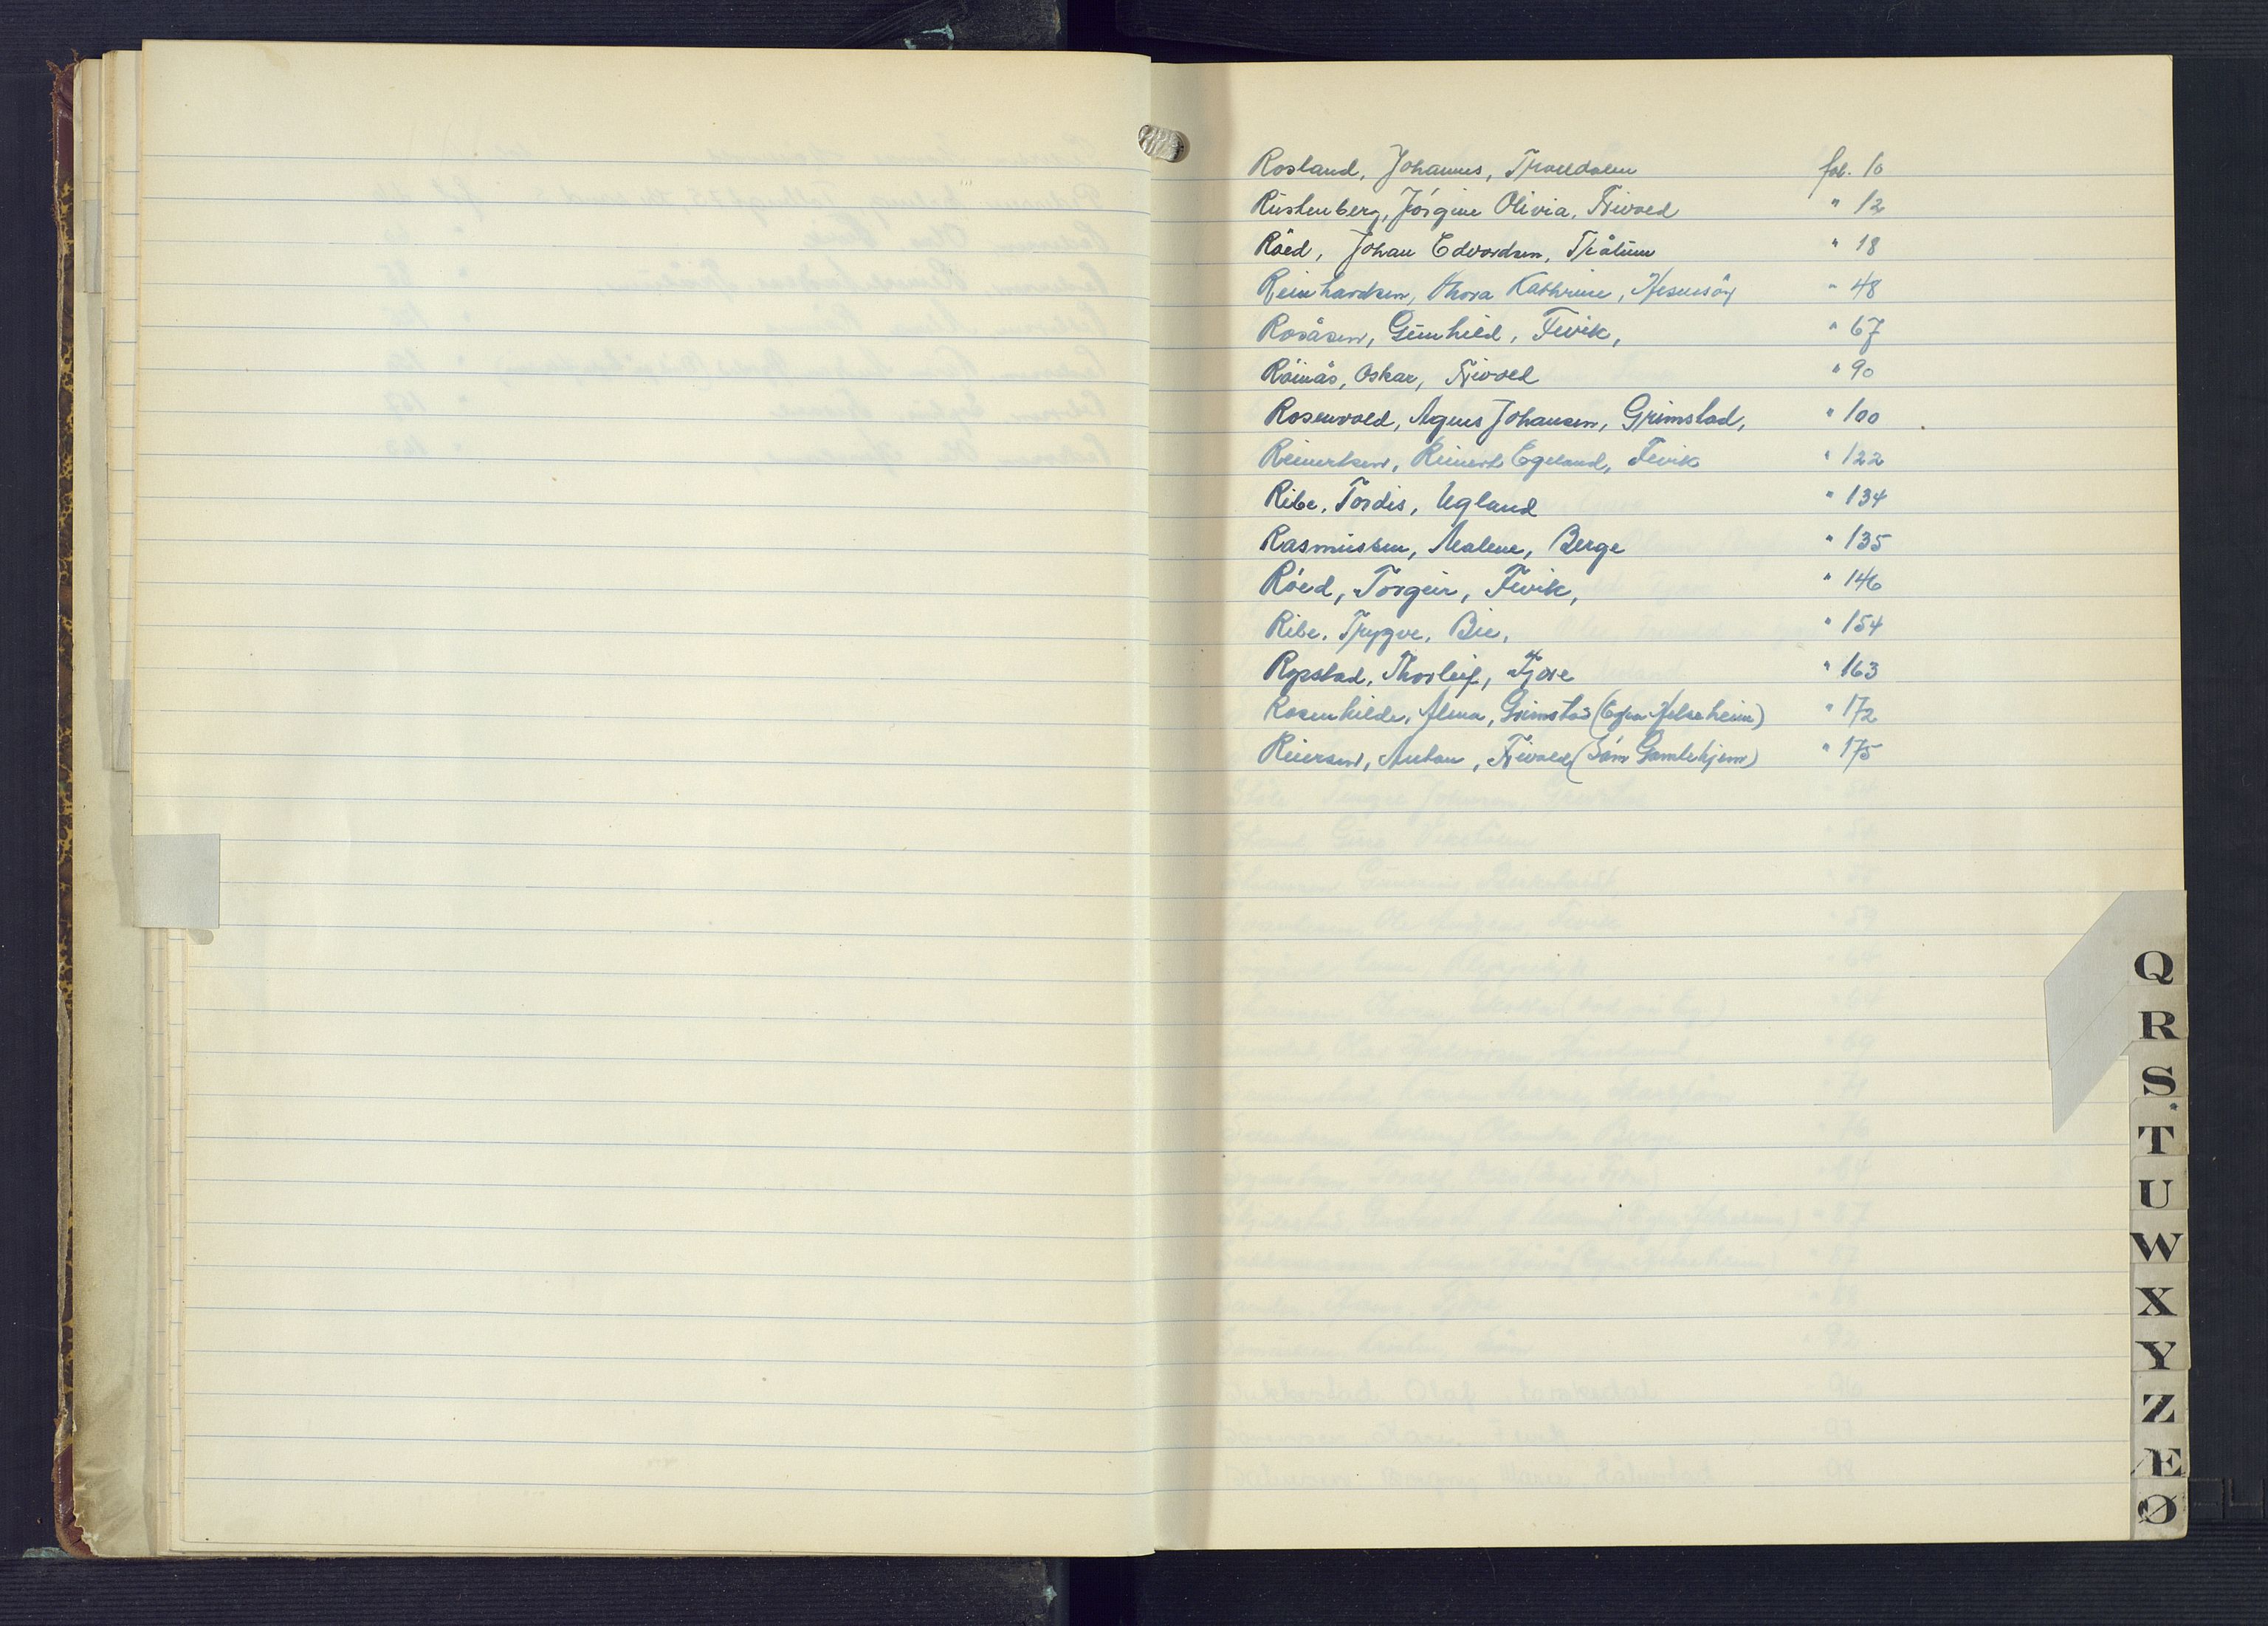 Rosland, Johannes, Trolldalen fol. 10
Rustenberg, Jörgine Olivia, Frivold " 12
Röed, Johan Edvardsen, Tråtun " 18
Reinhardsen, Thora Kathrine, Hesnesöy " 48
Rosåsen, Gunhild, Fevik, " 67
Röinås, Oskar, Frivold " 90
Rosenvold, Agnes Johansen, Grimstad, " 100
Reinertsen, Reinert Egeland, Fevik " 122
Ribe, Tordis, Ugland " 134
Rasmussen, Malene, Berge " 135
Röed, Torgeir, Fevik, " 146
Ribe, Trygve, Bie, " 154
Ropstad, Thorleif, Fjære " 163
Rosenkilde, Alma, Grimstad (Helseheim) " 172
Reiersen, Anton, Frivold (Söm Gamlehjem) " 175
Q
R
S
T
U
W
X
Y
Z
Æ
Ø